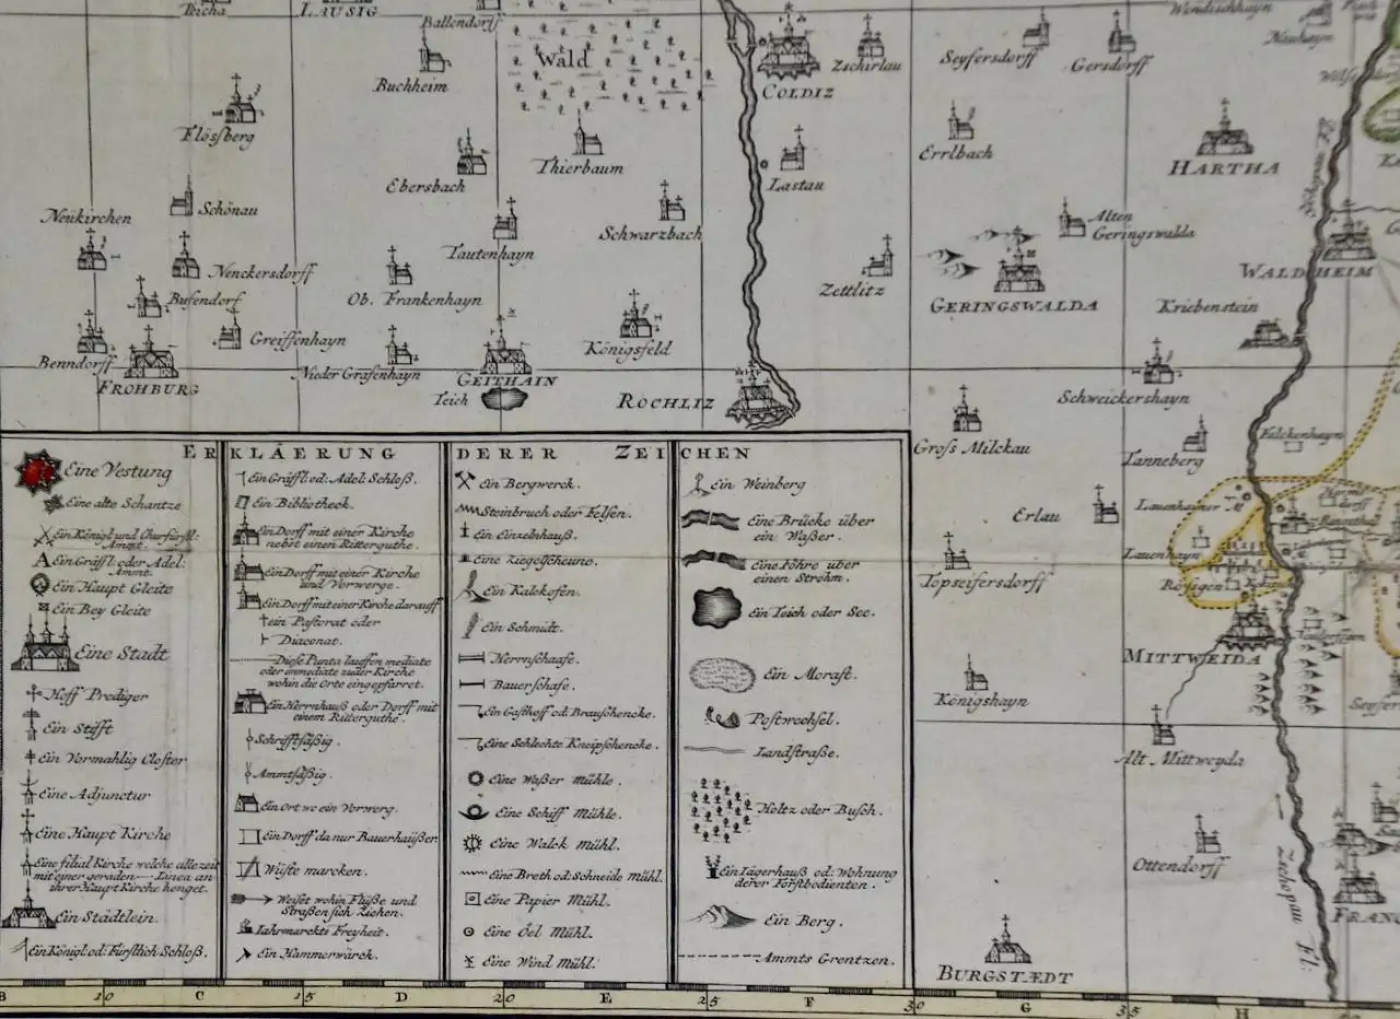 LAUSIG
Ballendorff
Wald
Buchheim
COLDIZ
Zschirlau
Seyfersdorff
Gersdorff
Flössberg
Ebersbach
Thierbaum
Lastau
Errlbach
HARTHA
Neükirchen
Schönau
Nenckersdorff
Tautenhayn
Schwarzbach
Alten
Geringswalda
Bufendorf
Ob. Frankenhayn
Zettlitz
GERINGSWALDA
WALDHEIM
Kriebenstein
Benndorff
Greiffenhayn
FROHBURG
Nieder Grafenhayn
GEITHAIN
Königsfeld
Teich
ROCHLIZ
Schweickershayn
Gross Milckau
Tanneberg
Falckenhayn
Erlau
Lauenhayn
Topseifersdorff
Rössgen
MITTWEIDA
Königshayn
Alt Mittweyda
Ottendorff
BURGSTÆDT
Zschopau Fl:
ERKLÄERUNG DERER ZEICHEN
Eine Vestung
Eine alte Schantze
Ein Königl und Churfürstl:
Ammt.
A Ein Gräffl: oder Adel:
Ammt.
Ein Haupt Gleite
Ein Bey Gleite
Eine Stadt
Hoff Prediger
Ein Stifft
Ein Vormahlig Closter
Eine Adjunctur
Eine Haupt Kirche
Eine filial Kirche welche allezeit
mit einer geraden Linea an
ihrer Haupt Kirche henget.
Ein Städtlein.
Ein Königl: od: Fürstlich Schloß.
Ein Gräffl: od: Adel: Schloß.
Ein Bibliotheck.
Ein Dorff mit einer Kirche
nebst einen Ritterguthe.
Ein Dorff mit einer Kirche
und Vorwerge.
Ein Dorff mit einer Kirche darauff
ein Pastorat oder
Diaconat.
Diese Punta lauffen mediate
oder immediate zuder Kirche
wohin die Orte eingepfarret.
Ein Herrnhauß oder Dorff mit
einem Ritterguthe.
Schrifftsäßig.
Ammtsäßig.
Ein Ort wo ein Vorwerg.
Ein Dorff da nur Bauerhäüßer
Wüste marcken.
Weiset wohin Flüße und
Straßen sich Ziehen.
Iahrmarckts Freyheit.
Ein Hammerwärck.
Ein Bergwerck.
Steinbruch oder Felsen.
Ein Einzelnhauß.
Eine Ziegelscheune.
Ein Kalckofen.
Ein Schmidt.
Herrnschaafe.
Bauerschafe.
Ein Gasthoff od: Brauschencke.
Eine Schlechte Kneipschencke.
Eine Waßer Mühle.
Eine Schiff Mühle.
Eine Walck Mühl.
Eine Breth od: Schneide Mühl.
Eine Papier Mühl.
Eine Oel Mühl.
Eine Wind Mühl:
Ein Weinberg
Eine Brücke über
ein Waßer.
Eine Föhre über
einen Strohm.
Ein Teich oder See.
Ein Morast.
Postwechsel.
Landstraße.
Holtz oder Busch.
Ein Iägerhauß od: Wohnung
derer Forstbedienten.
Ein Berg.
Ammts Grentzen.
B 10 C 15 D 20 E 25 F 30 G 35 H